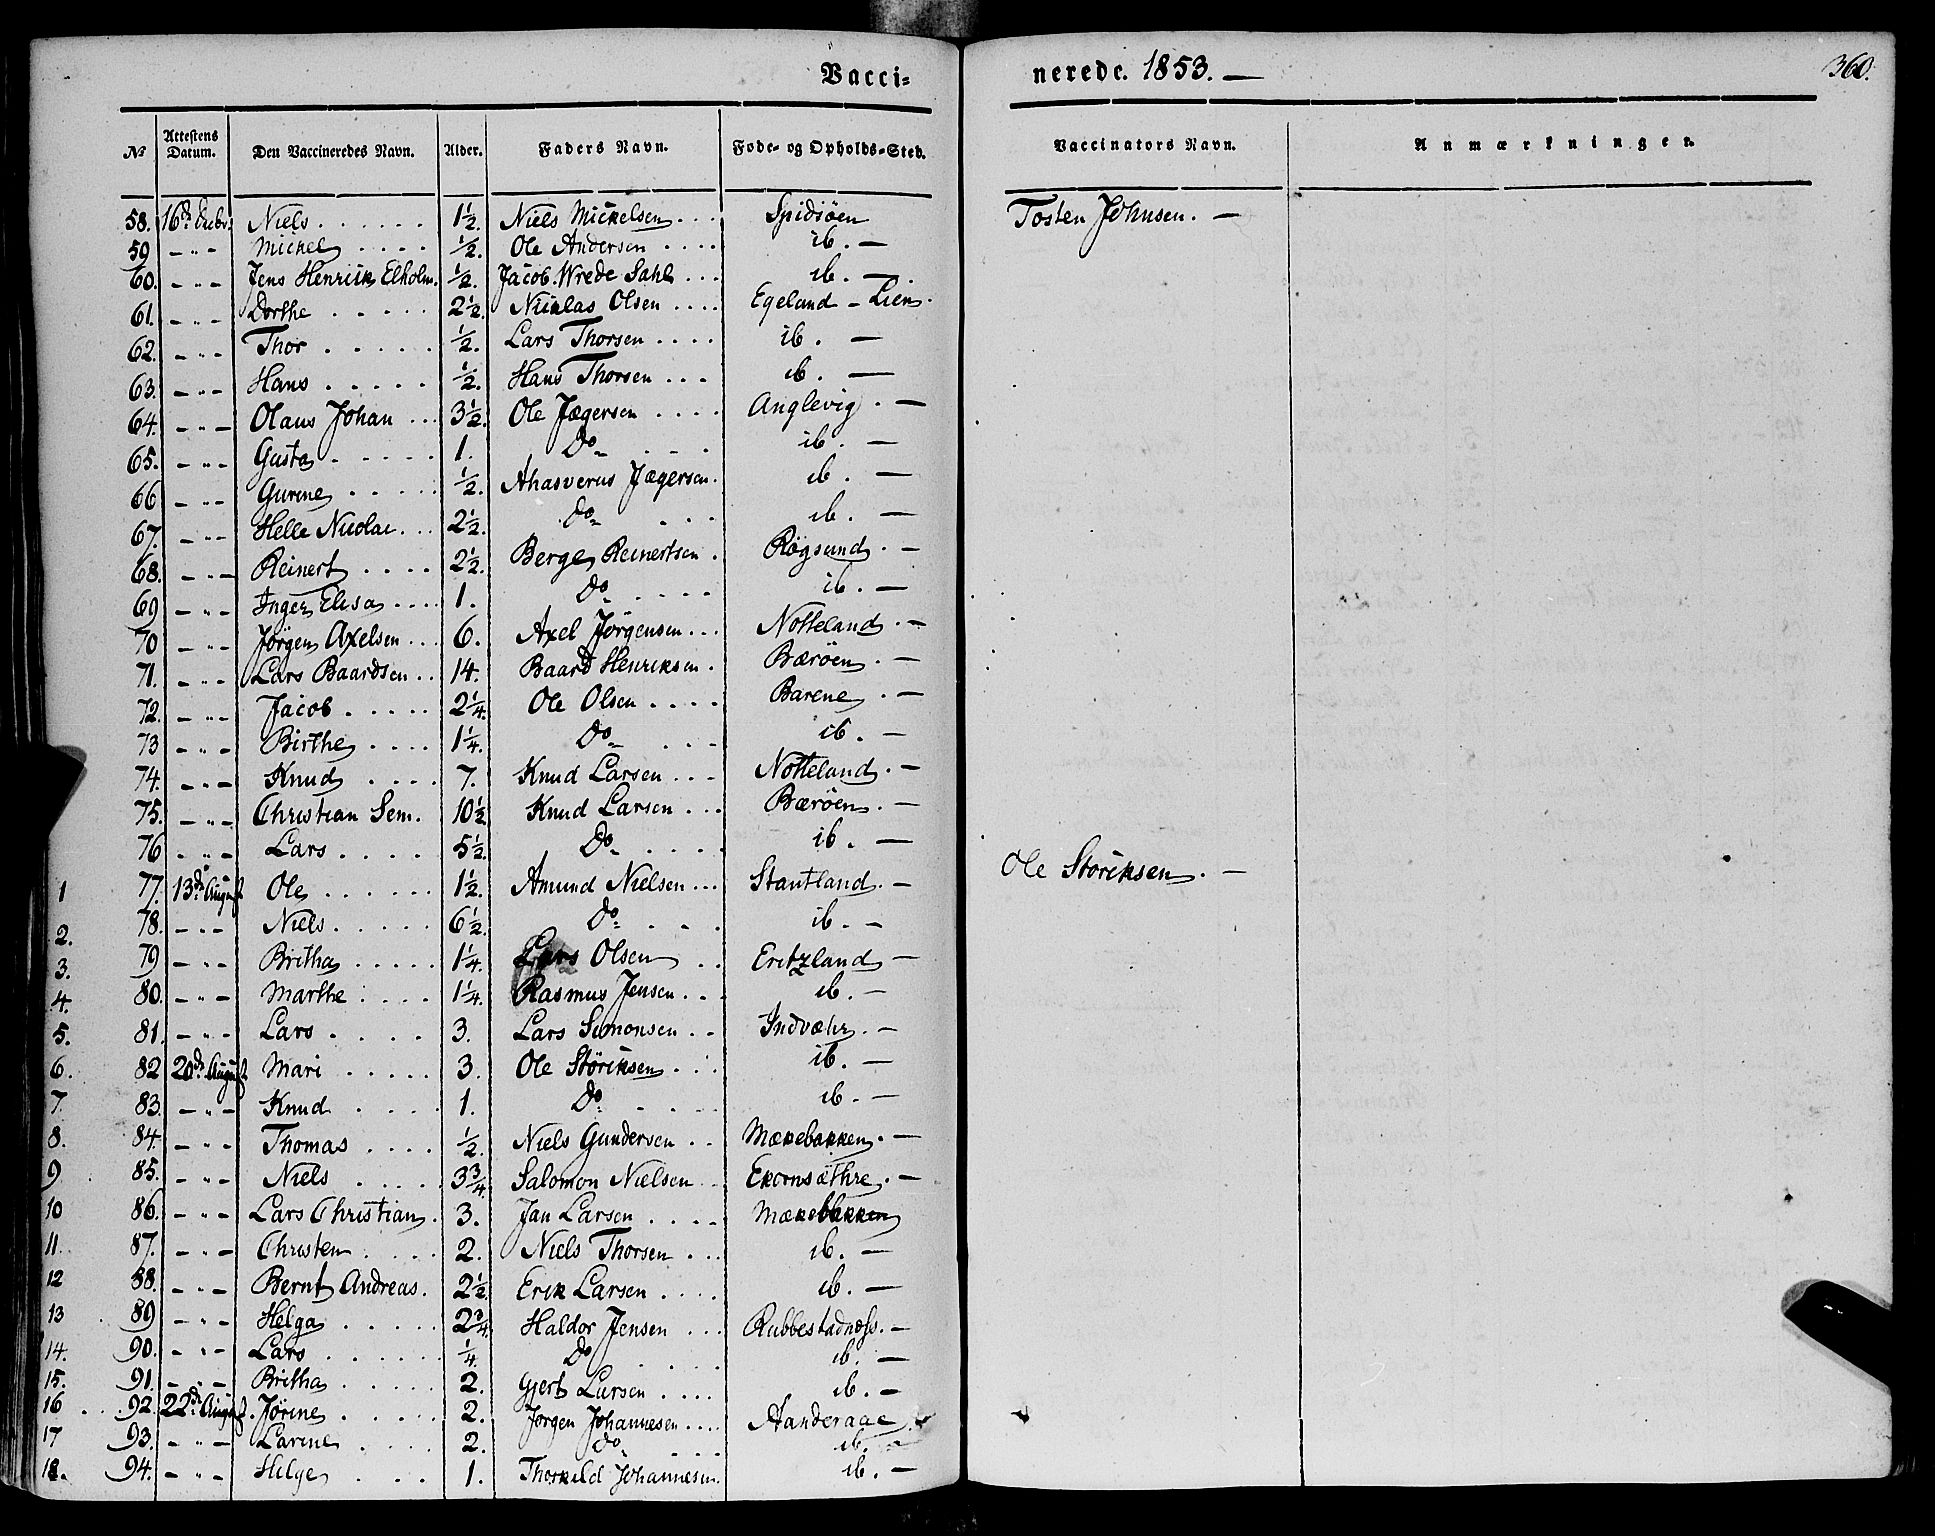 Vacci-
nerede. 1853. —
360.
No Attestens Datum. Den Vaccineredes Navn. Alder. Faders Navn. Føde- og Opholds-Sted. Vaccinators Navn. Anmærkninger.
58. 16d. Niels 1½. Niels Mickelsen Spidsöen Tosten Johnsen. —
59 – " – Michel ½. Ole Andersen ib. —
60. – " – Jens Henrick Elholm. ½. Jacob Wrede Dahl ib. —
61. – " – Dorthe 2½. Nicklas Olsen Egeland – Lien.
62. – " – Thor ½. Lars Thorsen ib. —
63. – " – Hans ½. Hans Thorsen ib. —
64. – " – Olaus Johan 3½. Ole Jægersen Anglevig. —
65. – " – Gusta 1. Do ib. —
66 – " – Gurine ½. Ahasverus Jægersen. ib. —
67. – " – Helle Nicolai 2½. Do ib. —
68. – " – Reinert 2½. Berge Reinertsen Røgsund. —
69 – " – Inger Elisa 1. Do ib. —
70 – " – Jørgen Axelsen 6. Axel Jørgensen Notteland. —
71. – " – Lars Baardsen 14. Baard Henriksen. Bærøen. —
72. – " – Jacob 2¼. Ole Olsen Barene. —
73 – " – Birthe 1¼. Do ib. —
74. – " – Knud 7. Knud Larsen Notteland. —
75. – " – Christian Sem. 10½ Knud Larsen Bærøen. —
76 – " – Lars 5½. Do ib. —
1 77. 13d. August Ole 1½. Amund Nielsen Stautland. — Ole Störiksen. —
2. 78. – " – Niels 6½. Do ib. —
3. 79 – " – Britha 1¼. Lars Olsen Eritzland —
4. 80. – " – Marthe 1¼. Rasmus Jensen ib. —
5. 81. – " – Lars 3. Lars Simonsen Indvæhr. —
6. 82 20d. August Mari 3. Ole Störiksen ib. —
7. 83. – " – Knud 1. Do ib. —
8. 84. – " – Thomas ½. Niels Gundersen Mækebakken. —
9 85. – " – Niels 3¾. Salomon Nielsen Ekornsæthre. —
10 86. – " – Lars Christian. 3. Jan Larsen Mækebakken
11. 87. – " – Christen 2. Niels Thorsen ib. —
12 88. – " – Bernt Andreas. 2½. Erik Larsen ib. —
13 89 – " – Helga 2¾. Haldor Jensen Rubbestadness. —
14. 90. – " – Lars ¼. Do ib. —
15. 91. – " – Britha 2. Gjert Larsen ib. —
16 92. 22d. August. Jørine 2. Jørgen Johannesen Aanderaae.
17 93. – " – Larine 2. Do ib. —
18. 94. – " – Helge 1. Thorkild Johannesen. ib. —